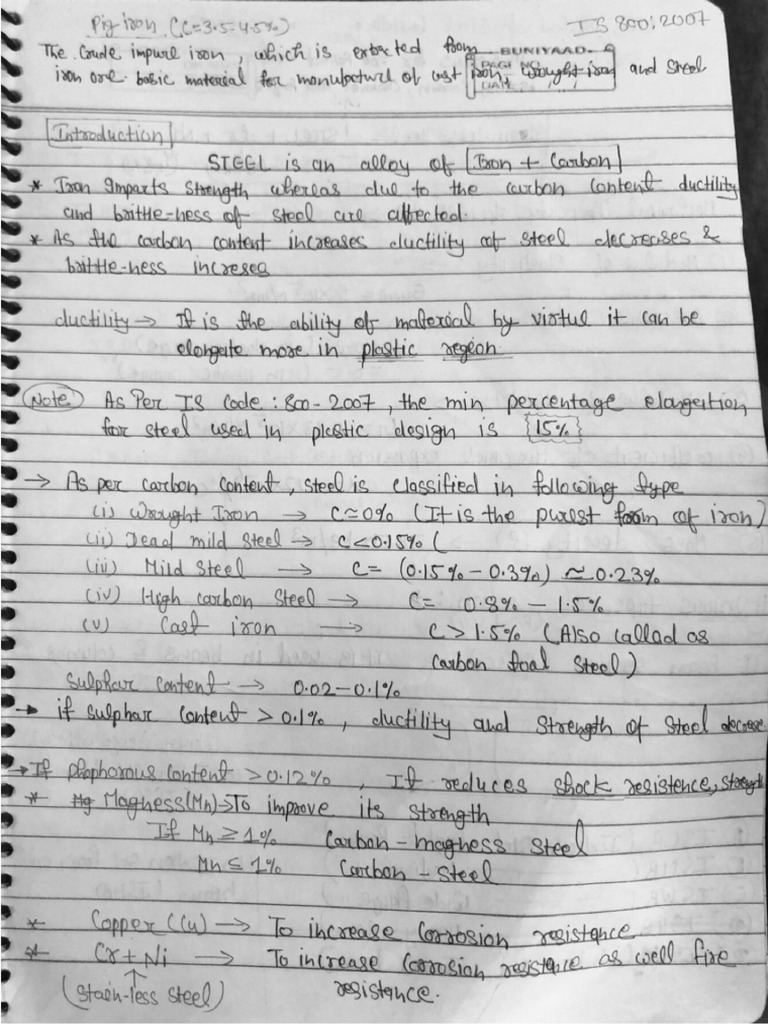 Pig iron (C=3.5-4.5%)
IS 800:2007
The Crude impure iron, which is extracted from
BUNIYAAD
PAGE NO.
DATE
iron ore. basic material for manufacture of cast iron, wrought iron and steel
Introduction
STEEL is an alloy of Iron + Carbon
* Iron Imparts strength whereas due to the carbon content ductility
and brittle-ness of steel are affected.
* As the carbon content increases ductility of steel decreases &
brittle-ness increses
ductility → It is the ability of material by virtue it can be
elongate more in plastic region.
Note As Per IS Code : 800-2007, the min percentage elongation
for steel used in plastic design is {15%}
→ As per carbon content, steel is classified in following type
(i) Wrought Iron → C≃0% (It is the purest form of iron)
(ii) Dead mild Steel → C<0.15% (
(iii) Mild Steel → C= (0.15% - 0.3%) ≃0.23%
(iv) High carbon Steel → C= 0.8% - 1.5%
(v) Cast iron → C > 1.5% (Also callad as
carbon toal steel)
Sulphar content → 0.02-0.1%
→ if sulphar content > 0.1%, ductility and strength of steel decrese
→ If phophorous content > 0.12%, It reduces shock resistence, strength
* Mg Magness(Mn)→To improve its strength
If Mn ≥ 1% Carbon-magness steel
Mn ≤ 1% Carbon-steel
* Copper (Cu) → To increase Corrosion resistance
* Cr + Ni → To increase Corrosion resistance as well fire
(stain-less steel) resistance.